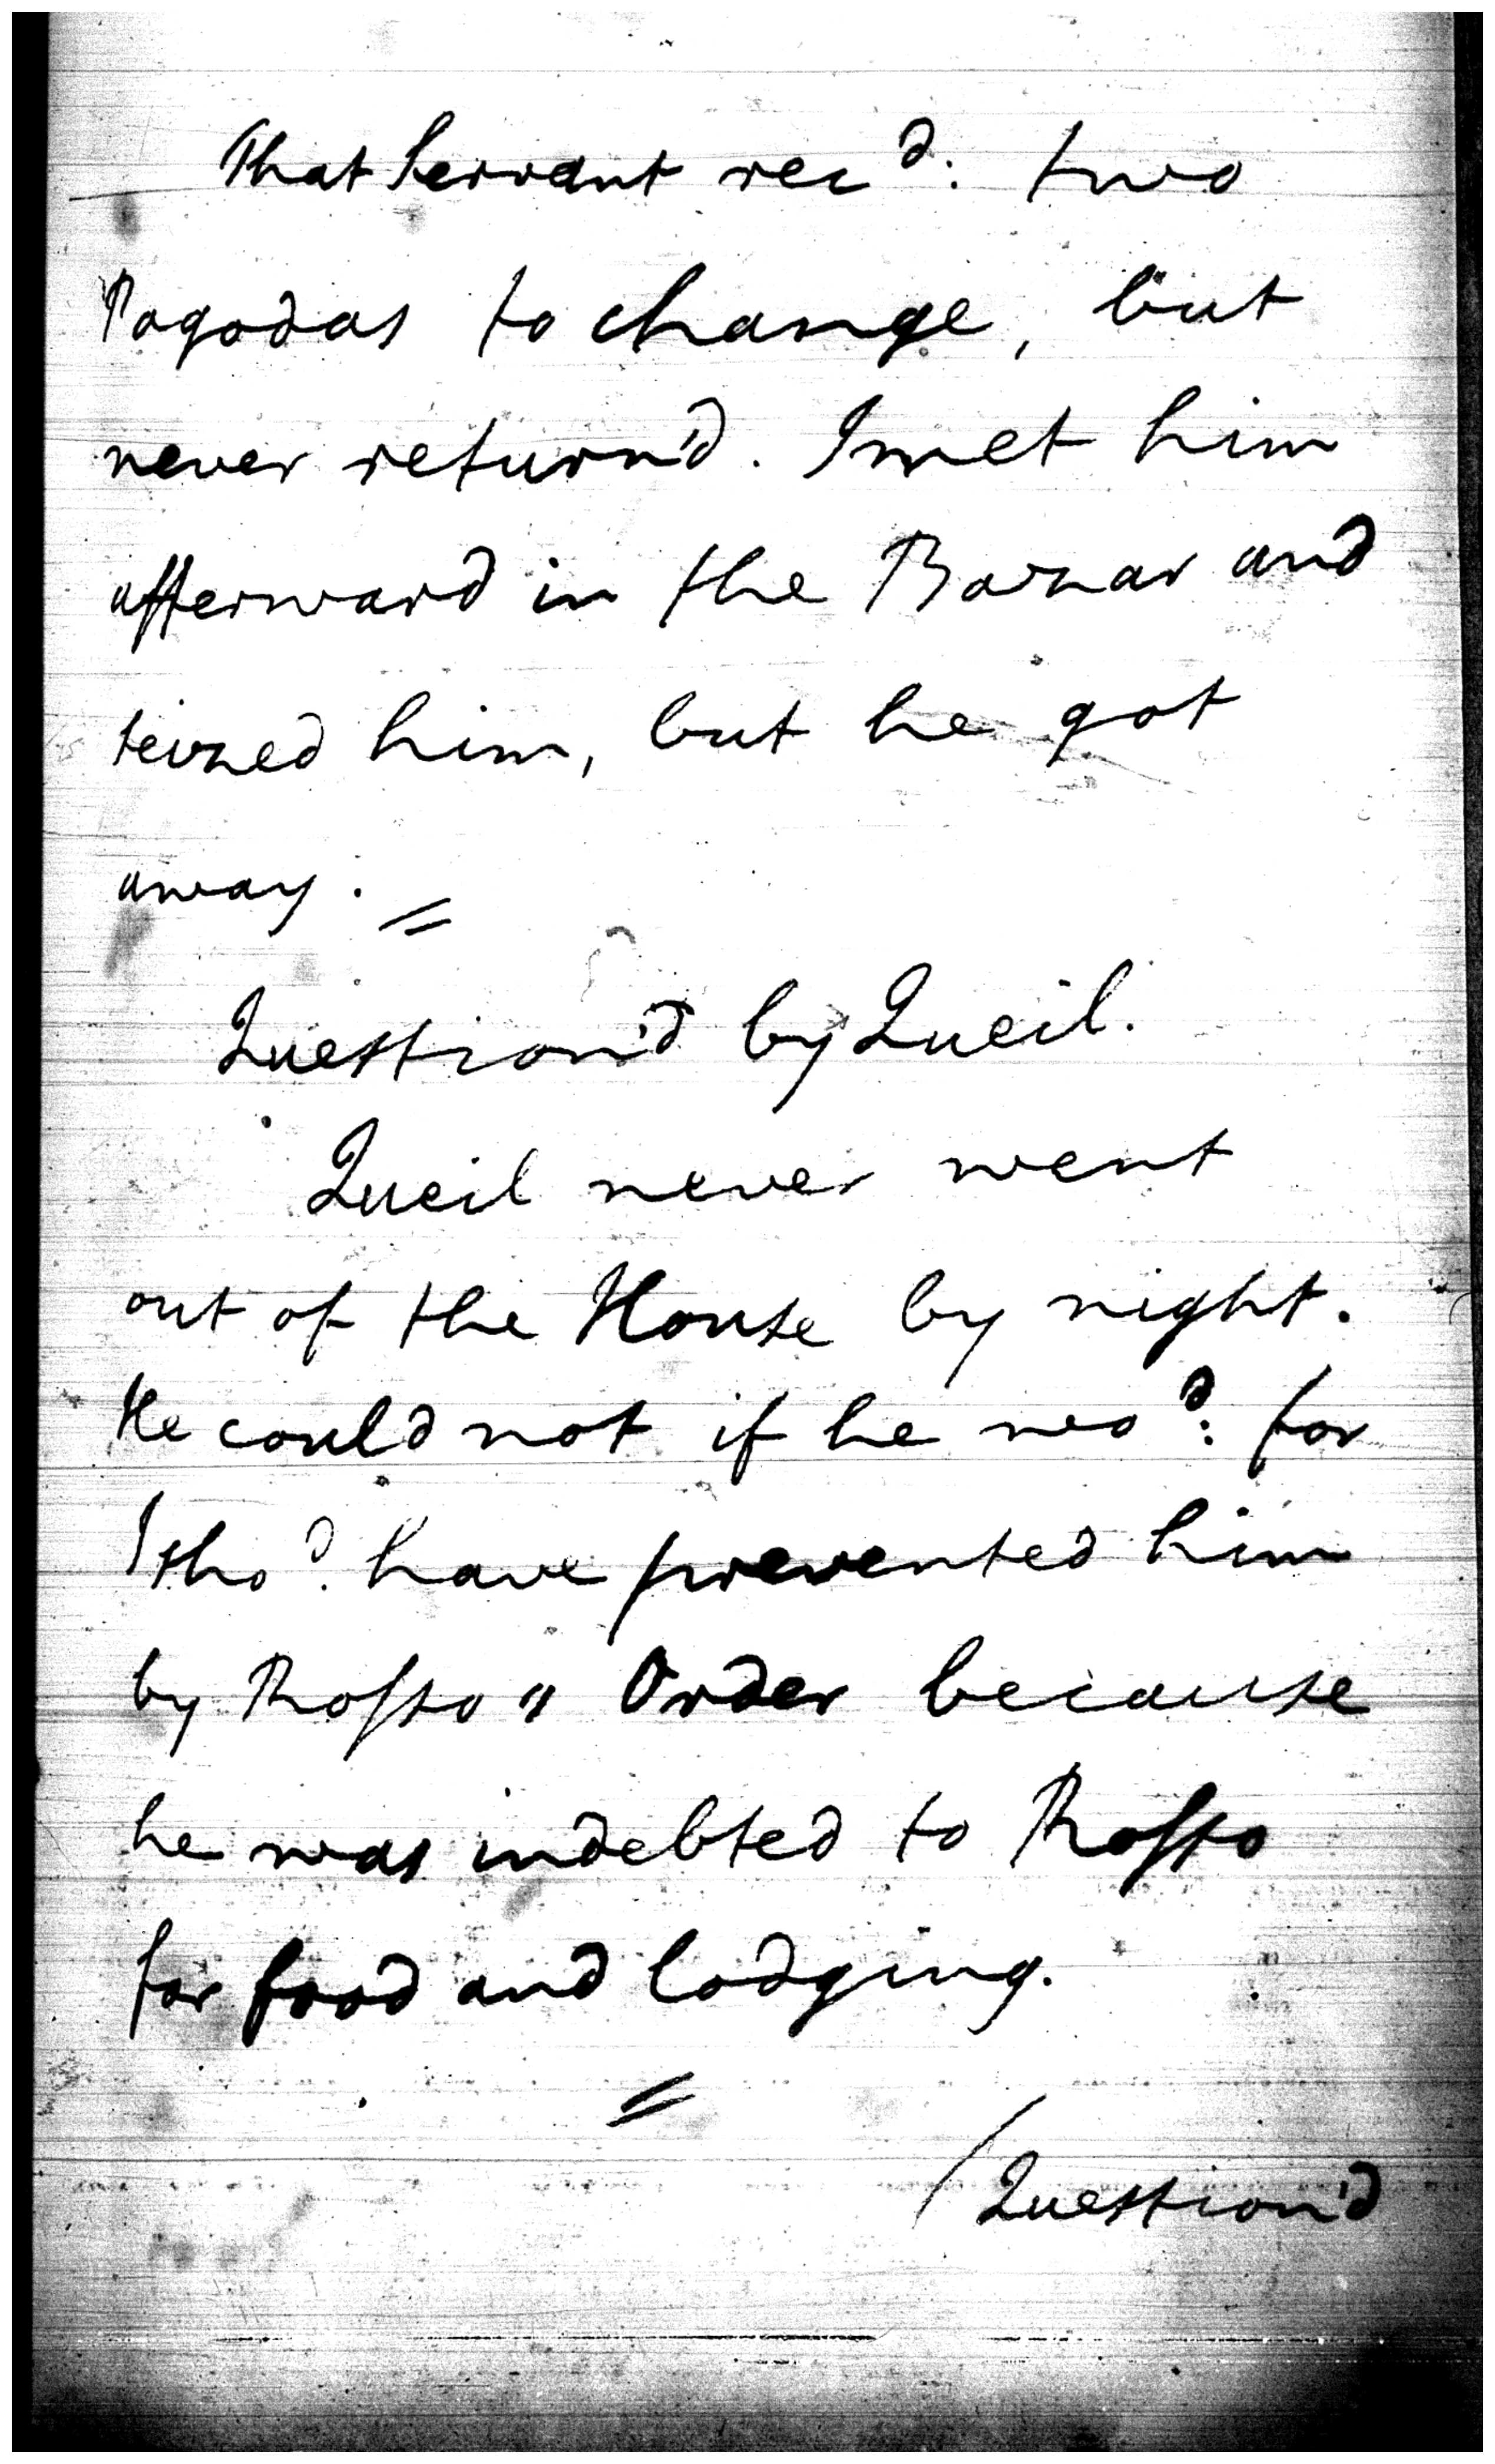 That Servant rec.d: two
Pagodas to change, but
never return'd. I met him
afterward in the Bazar and
seized him, but he got
away. =
Question'd by Queil.
Queil never went
out of the House by night.
He could not if he wo.d: for
I sho.d have prevented him
by Rosso's Order because
he was indebted to Rosso
for food and lodging.
=
/Question'd